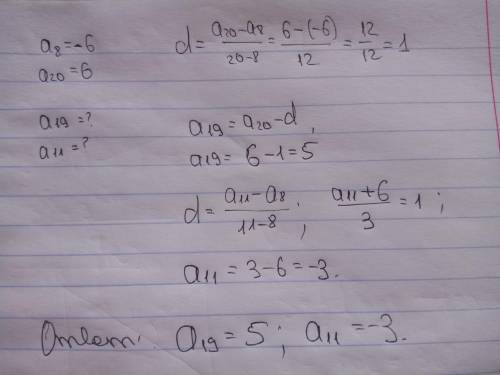 a₈=-6
a₂₀=6
d = (a₂₀-a₈)/(20-8) = (6-(-6))/12 = 12/12 = 1
a₁₉=?
a₁₁=?
a₁₉ = a₂₀-d,
a₁₉ = 6-1=5
d = (a₁₁-a₈)/(11-8); (a₁₁+6)/3 = 1;
a₁₁ = 3-6=-3.
Ответ: a₁₉=5; a₁₁=-3.